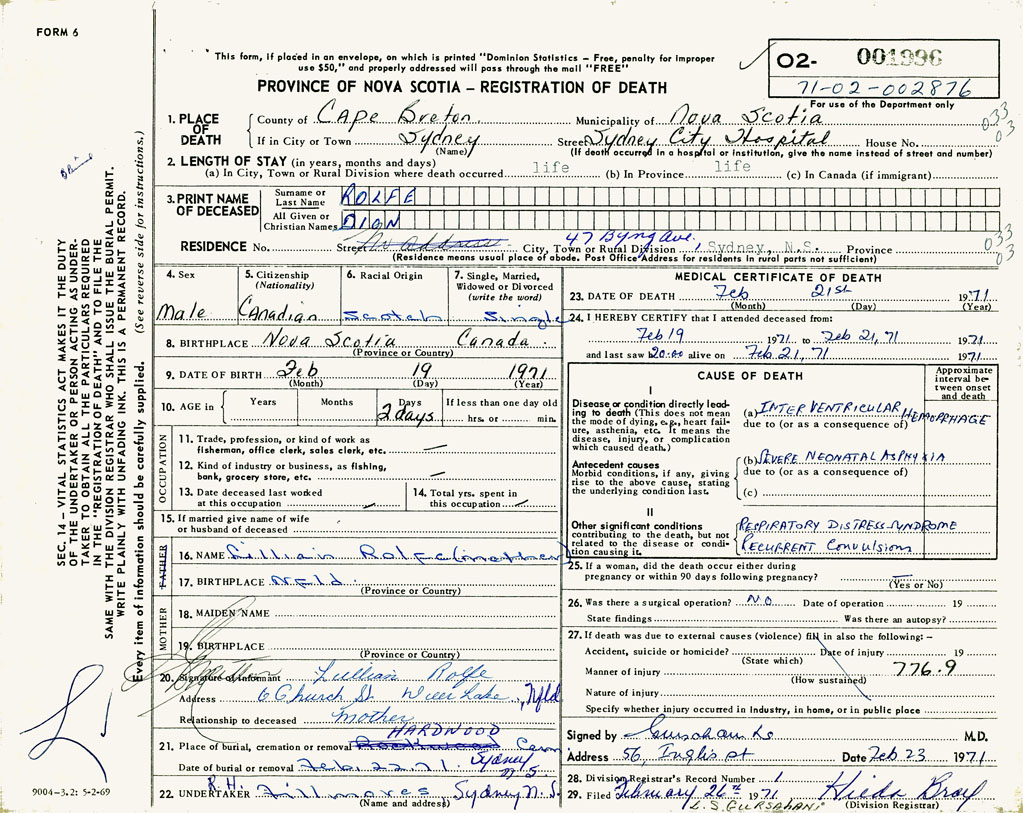 FORM 6
This form, if placed in an envelope, on which is printed "Dominion Statistics – Free, penalty for improper
use $50," and properly addressed will pass through the mail "FREE"
02- 001996
71-02-002876
For use of the Department only
PROVINCE OF NOVA SCOTIA – REGISTRATION OF DEATH
1. PLACE OF DEATH
County of Cape Breton Municipality of Nova Scotia 033
If in City or Town Sydney Street Sydney City Hospital House No. 03
(Name) (If death occurred in a hospital or institution, give the name instead of street and number)
2. LENGTH OF STAY (in years, months and days)
(a) In City, Town or Rural Division where death occurred life (b) In Province life (c) In Canada (if immigrant)
3. PRINT NAME OF DECEASED
Surname or Last Name ROLFE
All Given or Christian Names DION
RESIDENCE No. Street No Address 47 Byng Ave. City, Town or Rural Division Sydney, N.S. Province 033
03
(Residence means usual place of abode. Post Office Address for residents in rural parts not sufficient)
4. Sex
Male
5. Citizenship
(Nationality)
Canadian
6. Racial Origin
Scotch
7. Single, Married,
Widowed or Divorced
(write the word)
Single
8. BIRTHPLACE Nova Scotia Canada
(Province or Country)
9. DATE OF BIRTH Feb 19 1971
(Month) (Day) (Year)
10. AGE in Years Months Days If less than one day old
2 days hrs. or min.
OCCUPATION
11. Trade, profession, or kind of work as
fisherman, office clerk, sales clerk, etc. —
12. Kind of industry or business, as fishing,
bank, grocery store, etc. —
13. Date deceased last worked
at this occupation
14. Total yrs. spent in
this occupation
15. If married give name of wife
or husband of deceased
FATHER
16. NAME Lillian Rolfe (mother)
17. BIRTHPLACE Nfld.
(Province or Country)
MOTHER
18. MAIDEN NAME
19. BIRTHPLACE
(Province or Country)
20. Signature of Informant Lillian Rolfe
Address 6 Church St. Lake, Nfld
Relationship to deceased Mother
HARDWOOD
21. Place of burial, cremation or removal Cem
Date of burial or removal Feb. 22. 71. Sydney NS
22. UNDERTAKER R.H. Fillmores Sydney N.S.
(Name and address)
MEDICAL CERTIFICATE OF DEATH
23. DATE OF DEATH Feb 21st 1971
(Month) (Day) (Year)
24. I HEREBY CERTIFY that I attended deceased from:
Feb 19 1971 to Feb 21, 71 1971
and last saw 20:00 alive on Feb. 21, 71 1971
CAUSE OF DEATH
Approximate
interval be-
tween onset
and death
I
Disease or condition directly lead-
ing to death (This does not mean
the mode of dying, e.g., heart fail-
ure, asthenia, etc. It means the
disease, injury, or complication
which caused death.)
(a) INTERVENTRICULAR HEMORRHAGE
due to (or as a consequence of)
Antecedent causes
Morbid conditions, if any, giving
rise to the above cause, stating
the underlying condition last.
(b) SEVERE NEONATAL ASPHYXIA
due to (or as a consequence of)
(c)
II
Other significant conditions
contributing to the death, but not
related to the disease or condi-
tion causing it.
RESPIRATORY DISTRESS SYNDROME
RECURRENT CONVULSIONS
25. If a woman, did the death occur either during
pregnancy or within 90 days following pregnancy? —
(Yes or No)
26. Was there a surgical operation? NO Date of operation 19
State findings Was there an autopsy?
27. If death was due to external causes (violence) fill in also the following: –
Accident, suicide or homicide? Date of injury 19
(State which)
Manner of injury 776.9
(How sustained)
Nature of injury
Specify whether injury occurred in industry, in home, or in public place
Signed by M.D.
Address 56, Inglis St Date Feb 23 1971
28. Division Registrar's Record Number 1
29. Filed February 26th 1971 Hilda
L.S. GURSAHANI (Division Registrar)
SEC. 14 – VITAL STATISTICS ACT MAKES IT THE DUTY
OF THE UNDERTAKER OR PERSON ACTING AS UNDER-
TAKER TO OBTAIN ALL THE PARTICULARS REQUIRED
IN THE "REGISTRATION OF DEATH" AND TO FILE THE
SAME WITH THE DIVISION REGISTRAR WHO SHALL ISSUE THE BURIAL PERMIT.
WRITE PLAINLY WITH UNFADING INK. THIS IS A PERMANENT RECORD.
Every item of information should be carefully supplied. (See reverse side for instructions.)
9004-3.2: 5-2-69